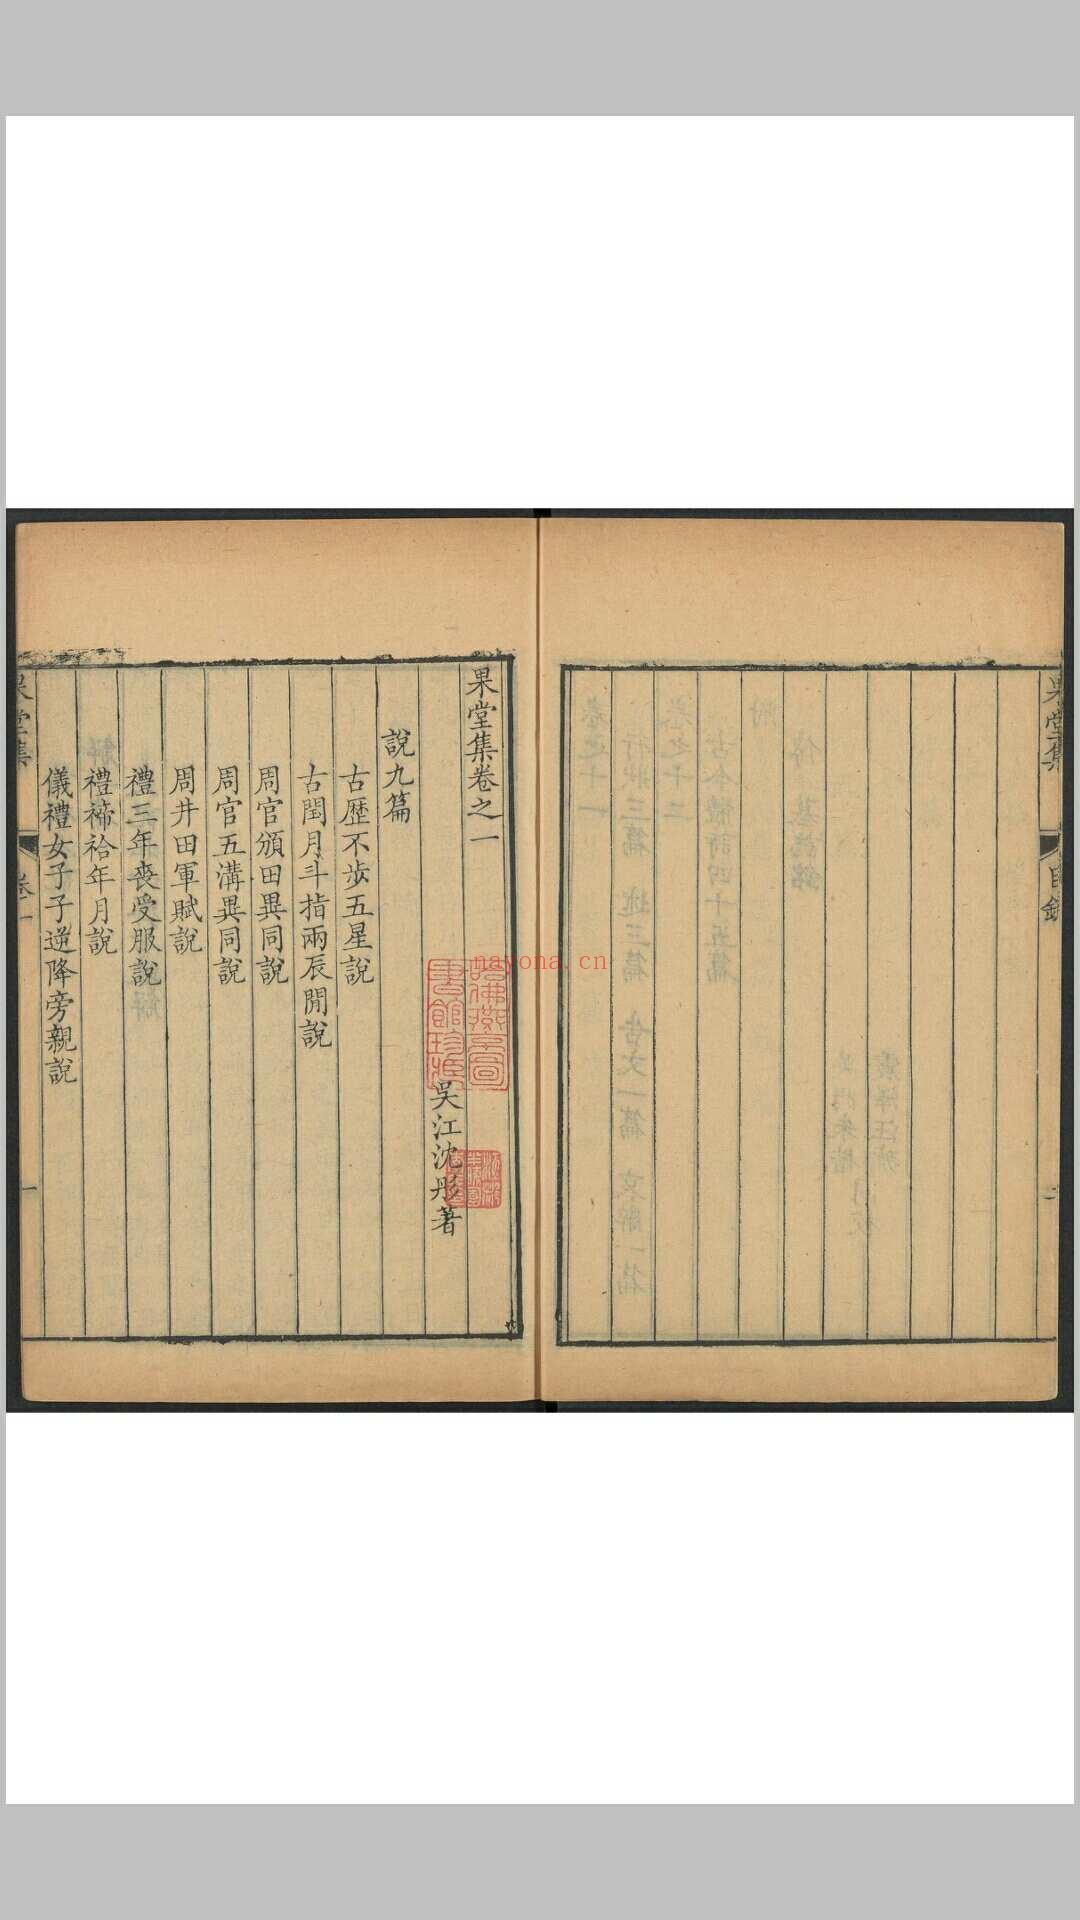 果堂集
目録
果堂集卷之一
吳江沈彤著
說九篇
古歷不步五星說
古閏月斗指兩辰閒說
周官頒田異同說
周官五溝異同說
周井田軍賦說
禮三年喪受服說
禮禘祫年月說
儀禮女子子逆降旁親說
果堂集
卷一
一
哈佛燕京圖書館珍藏
nayona.cn